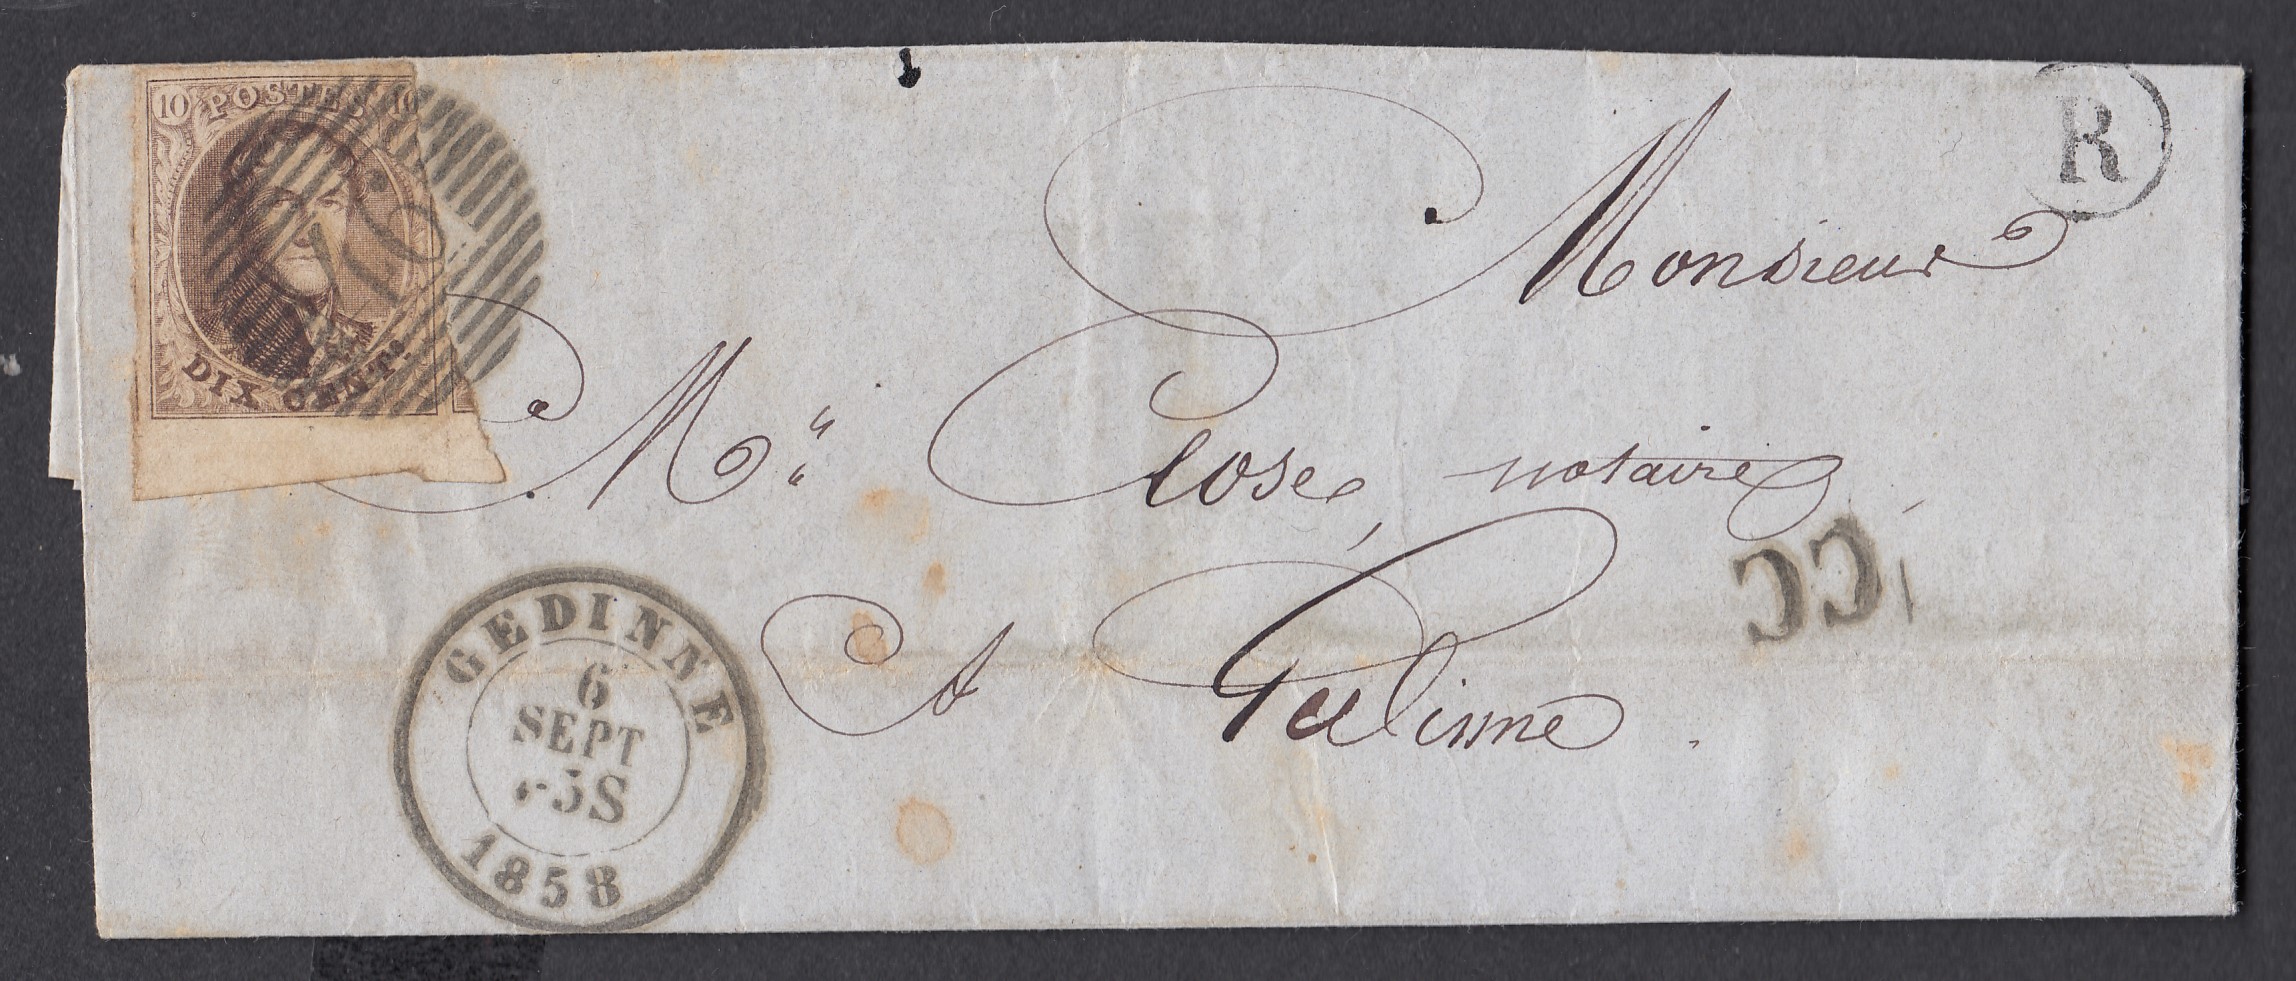 10 POSTES 10
DIX CENTS
R
Monsieur
Mr Close, notaire,
A Gedinne.
GEDINNE
6
SEPT
5S
1858